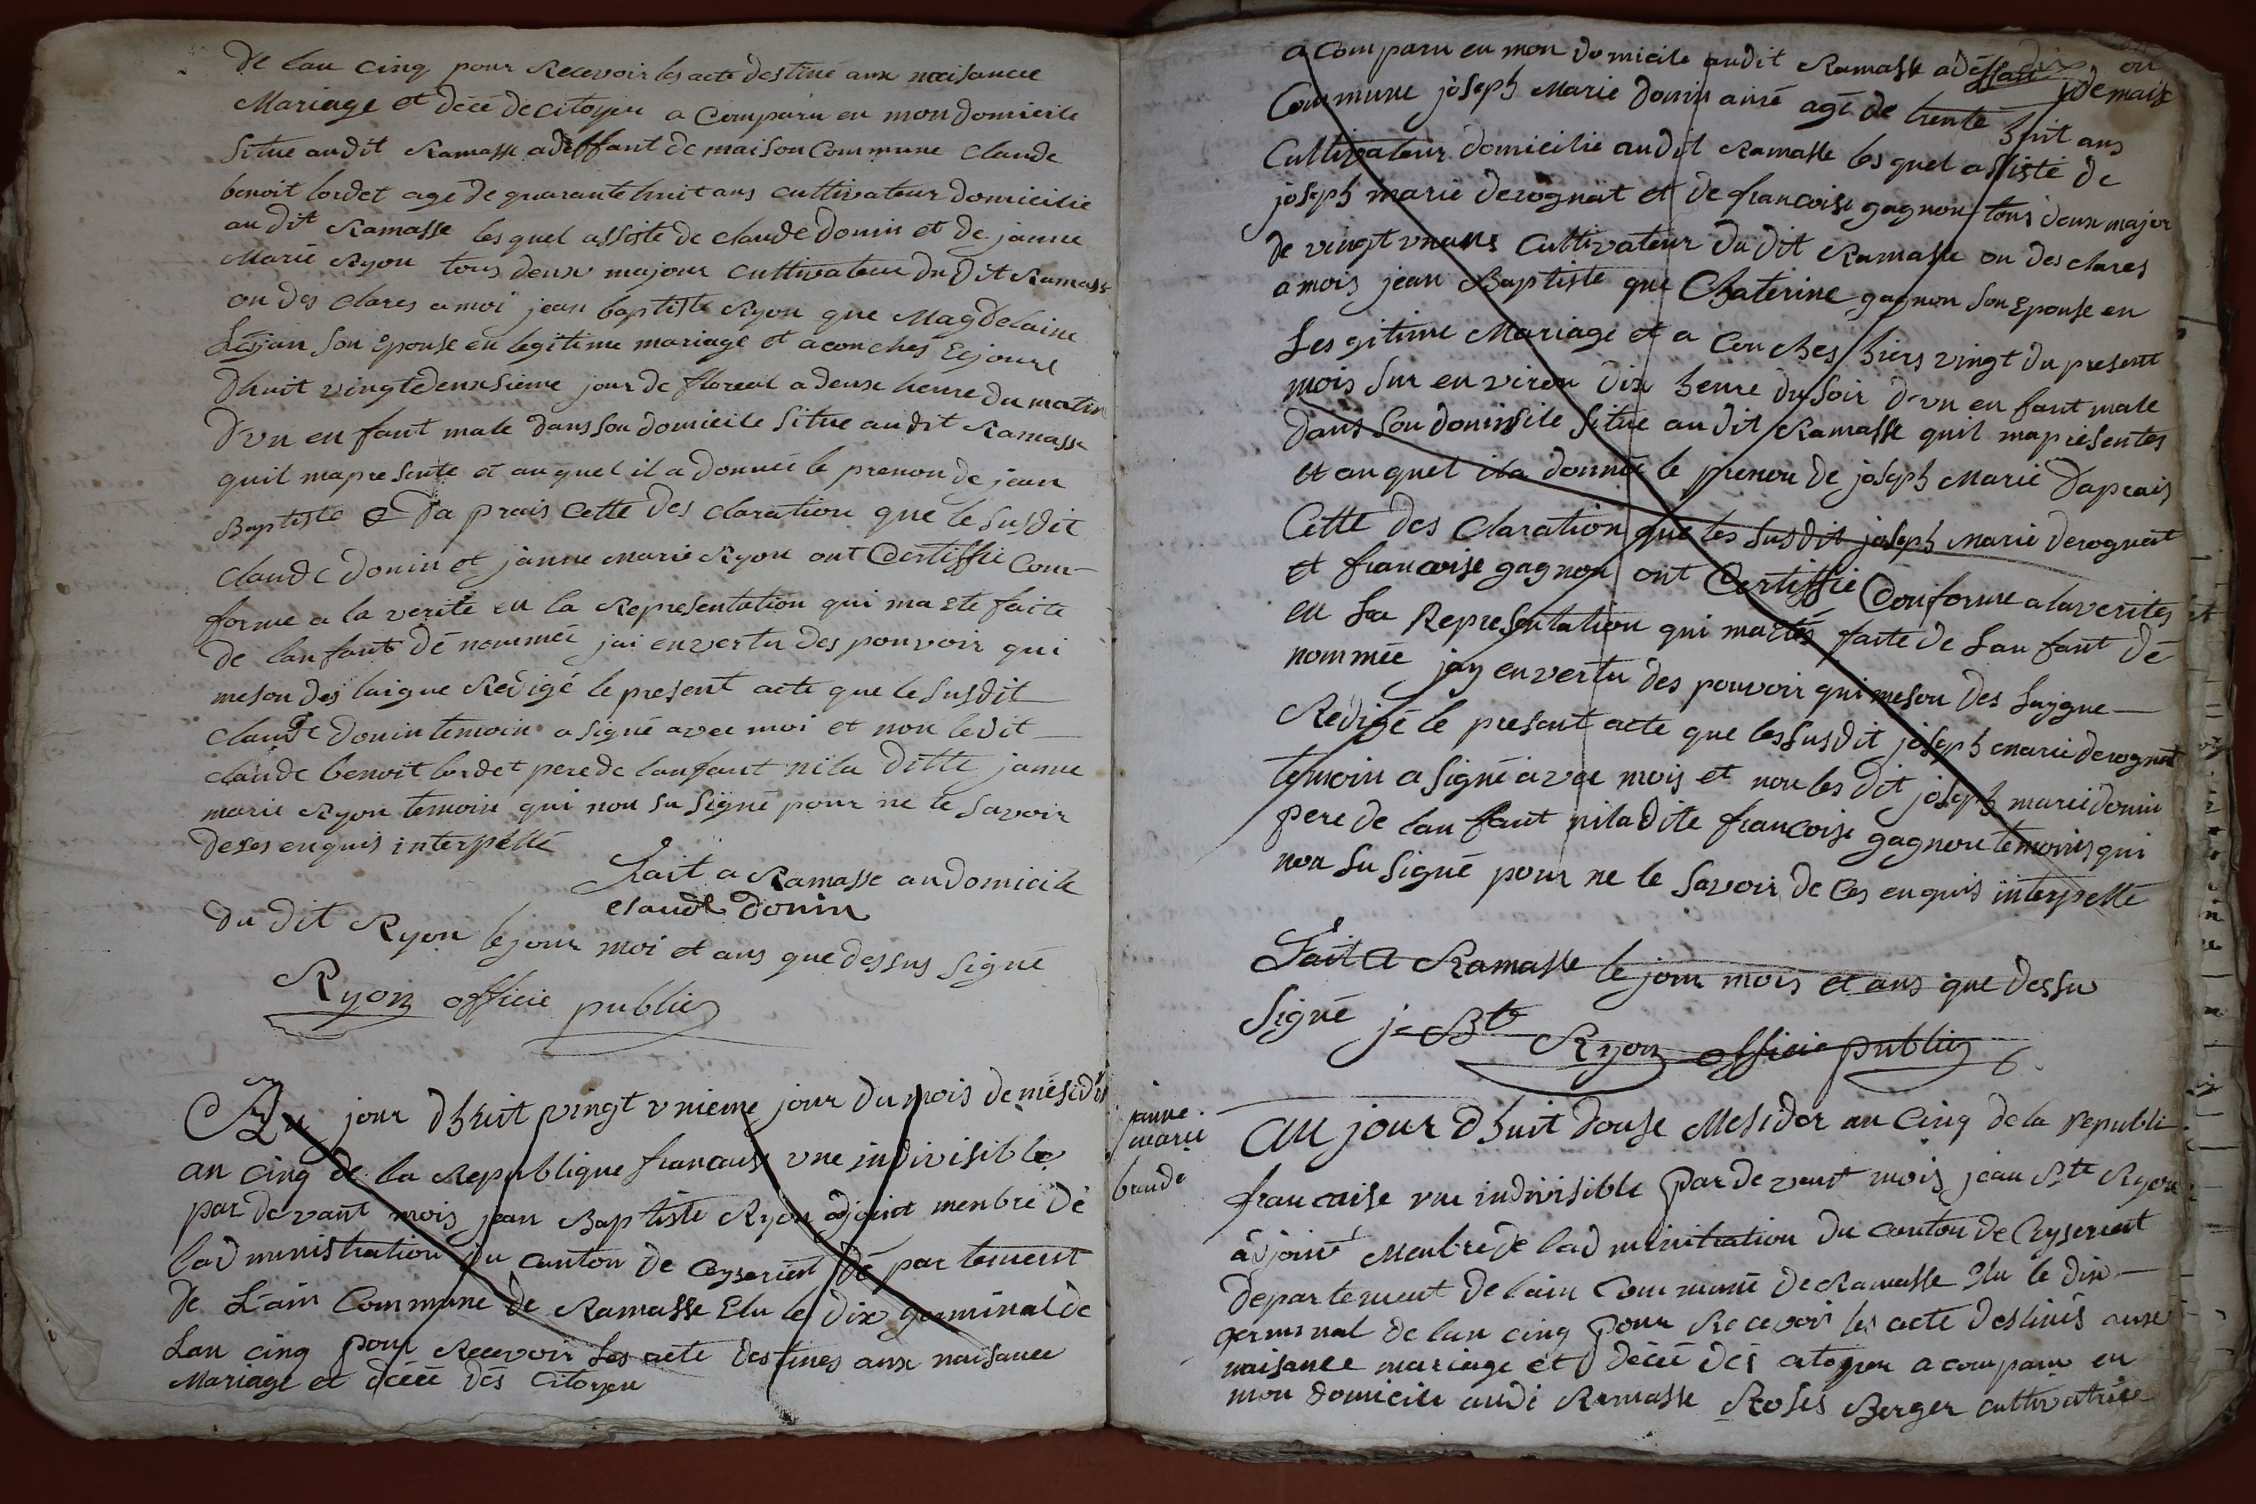 De lan cinq pour Recevoir les acte destiné aux naisance
Mariage et décé de citoyen a comparu en mon domicile
Situe audit Ramasse adeffant de maison Commune Claude
benoit lordet agé de quarante huit ans cultivateur domicilie
au dit Ramasse les quel assiste de claude donin et de janne
Marie Ryon tous deux majour cultivateur du dit Ramasse
on des clares a moi jean baptiste Ryon que Magdelaine
son Epouse en legitime mariage et a conchés Ejourd
dhuit vingtdeuxsieme jour de floreal a deux heure du matin
D'un en fant male dans son domicile Situe au dit Ramasse
quil mapresente et au quel il a donneé le prenon de jean
Baptiste et Da prais cette des claration que le susdit
Claude donin et janne marie Ryon ont Certiffie Com-
forme a la verité en la Representation qui ma ete faite
de lanfant dé nommeé jai en vertu des pouvoir qui
meson des laigue Redigé le present acte que le susdit
claude donin temoin a signé avec moi et non ledit
claude benoit lordet pere de lanfant ni la ditte janne
marie Ryon temoin qui non su signé pour ne le savoir
de ses enquis interpellé
Fait a Ramasse au domicile
claude donin
du dit Ryon le jour moi et ans que dessus signé
Ryon officie public
Au jour dhuit vingt unieme jour du mois de mésidor
an cinq de la Republique francaise une indivisible
par devant mois jean Baptiste Ryon adjoint menbre de
lad ministration du canton de Ceyseriat dé partement
de L'ain Commune de Ramasse Elu le dix germinal de
Lan cinq pour Recevoir Les acte destines aux naisance
Mariage et décéé dés citoyen
a comparu en mon domicile audit Ramasse adéffaut de maix
dix on
Commune joseph Marie donin ainé agé de trente huit ans
Cultivateur domicilie audit Ramasse les quel assisté de
joseph marie derognat et de francoise gagnon tous deux major
de vingt un ans Cultivateur du dit Ramasse on des clares
a mois jean Baptiste que Chaterine gagnon son Epouse en
Les gitime Mariage et a Couches hiers vingt du present
mois sur en viron dix heure du soir d'un en fant male
dans son domicile situe au dit Ramasse quil mapresentes
et au quel il a donné le prenon de joseph Marie Daprais
Cette des Claration que les susdit joseph Marie derognat
et francoise gagnon ont Certiffie Conforme a laverités
en La Representation qui ma Etés faite de Lan fant dé
nommée jay en vertu des pouvoir qui meson des Laigne
Redigé le present acte que les susdit joseph marie derognat
temoin a signé avec mois et non les dit joseph marie donin
pere de lan fant ni la dite francoise gagnon temoins qui
non su signé pour ne le savoir de ces enquis interpellé
Fait a Ramasse le jour mois et ans que dessu
Signé j- Bte Ryon officie public
janne
marie
brunde
Au jour dhuit douse Mesidor an cinq de la republi
francaise une indivisible par de vent mois jean Bte Ryon
adjoint Menbre de lad minitration du canton de Ceyseriat
departement de lain Commune de Ramasse Elu le dix
germinal de lan cinq pour Recevoir les acte destinés aux
naisance mariage et décéé dés citoyen a comparu en
mon domicile audi Ramasse Roses Berger cultivatrice